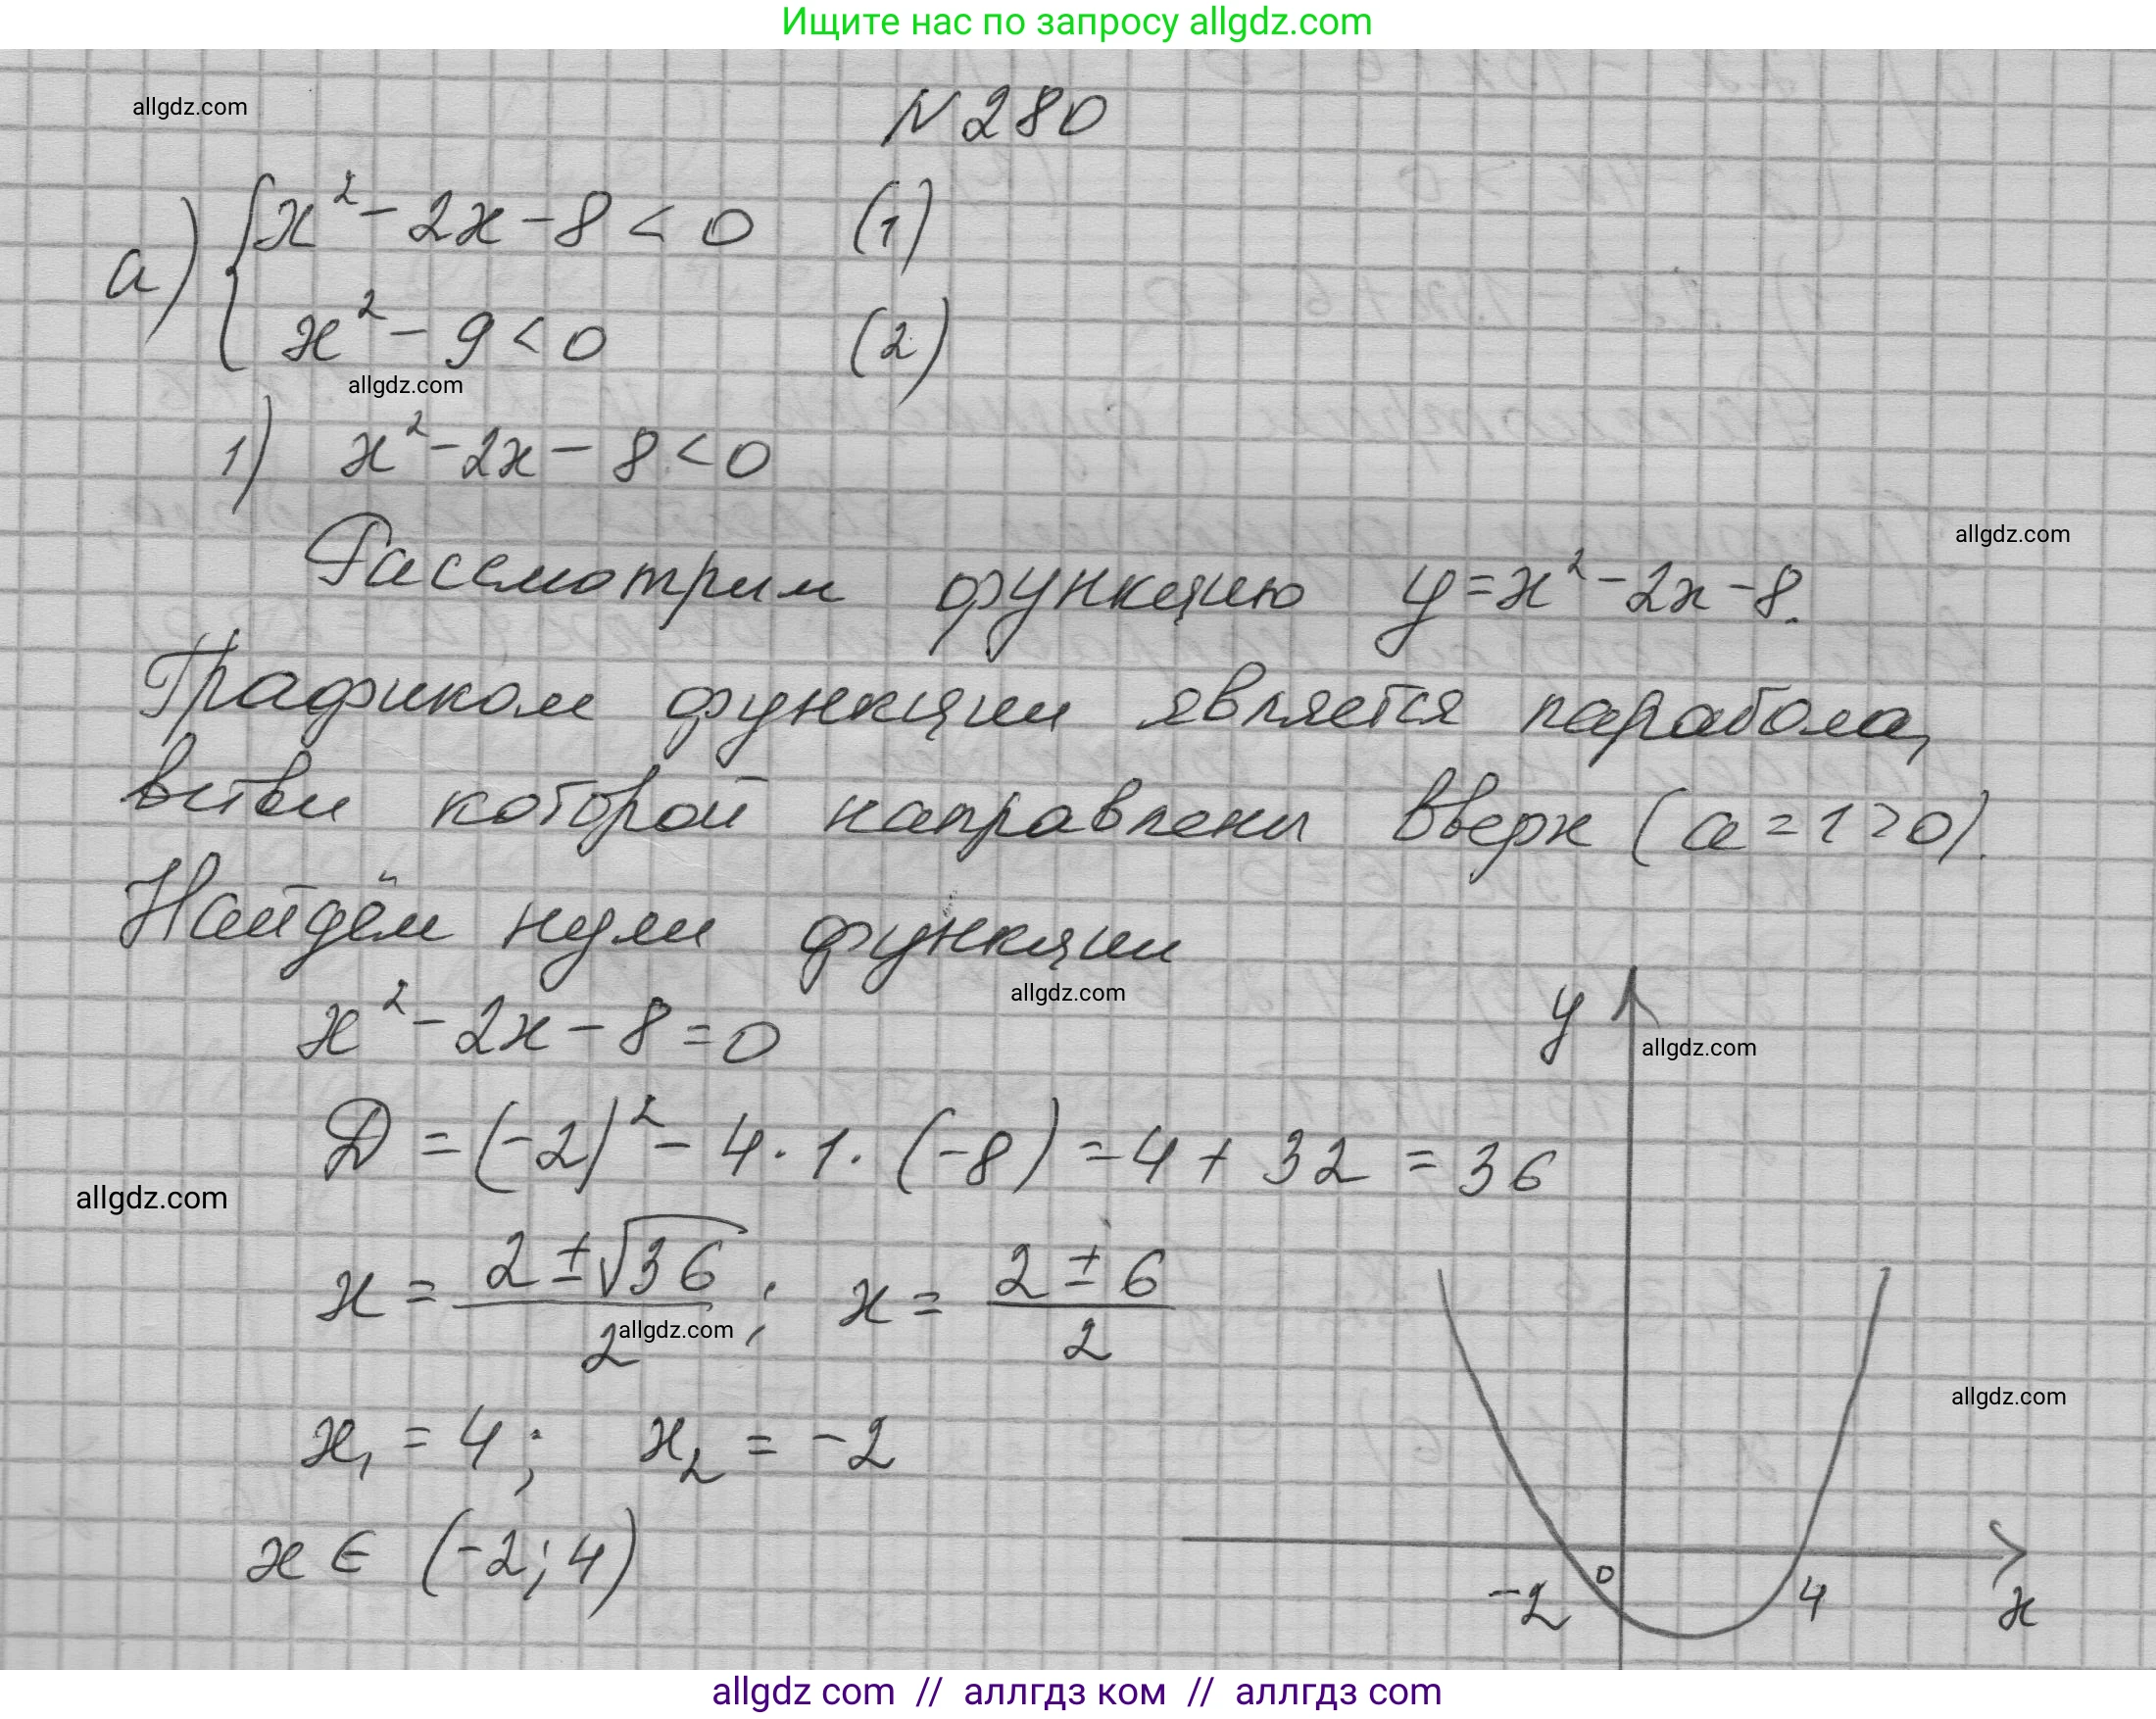 Ищите нас по запросу allgdz.com
allgdz.com
N 280
а) { x² - 2x - 8 < 0 (1)
x² - 9 < 0 (2)
allgdz.com
1) x² - 2x - 8 < 0
allgdz.com
Рассмотрим функцию y = x² - 2x - 8.
Графиком функции является парабола,
ветви которой направлены вверх (a = 1 > 0).
Найдём нули функции
allgdz.com
x² - 2x - 8 = 0
y
allgdz.com
D = (-2)² - 4 · 1 · (-8) = 4 + 32 = 36
allgdz.com
x = (2 ± √36)/2 ; x = (2 ± 6)/2
allgdz.com
allgdz.com
x₁ = 4; x₂ = -2
x ∈ (-2; 4)
-2 0 4 x
allgdz com // аллгдз ком // аллгдз com